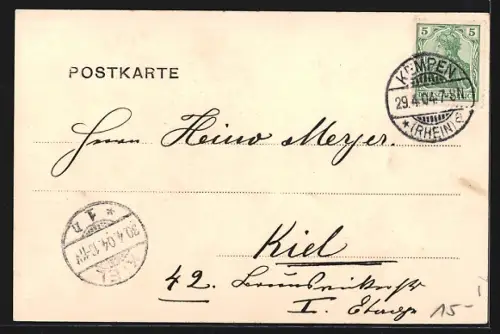 5 5
POSTKARTE
KEMPEN
29.4.04.7-8N
*(RHEIN)a
Herrn Heino Meyer.
KIEL
30.4.04.10-11V
* 1 n
Kiel
42.
I. Etage
15-